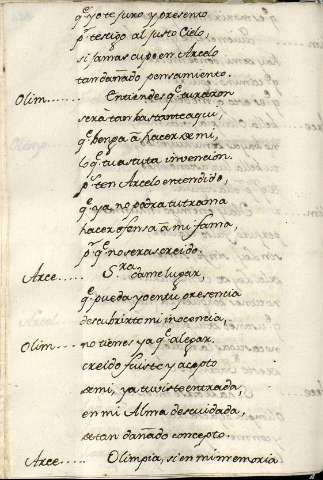 q.e yo te juro, y presento
p.r testigo al justo Cielo,
si jamas cupo en Arcelo
tan dañado pensamiento.
Olim....... Entiendes q.e tu razon
sera tan bastante aqui,
q.e venga â hacer de mi,
lo q.e tu astuta invencion.
p.s ten Arcelo entendido,
q.e ya no podra tu trama
hacer ofensa â mi fama,
p.r q.e no seras creido.
Arce...... S.ra dame lugar,
q.e pueda yo en tu presencia
descubrirte mi inocencia,
Olim.... no tienes ya q.e alegar.
creido fuiste y acepto
de mi, ya tuviste entrada,
en mi Alma descuidada,
de tan dañado concepto.
Arce..... Olimpia, si en mi memoria